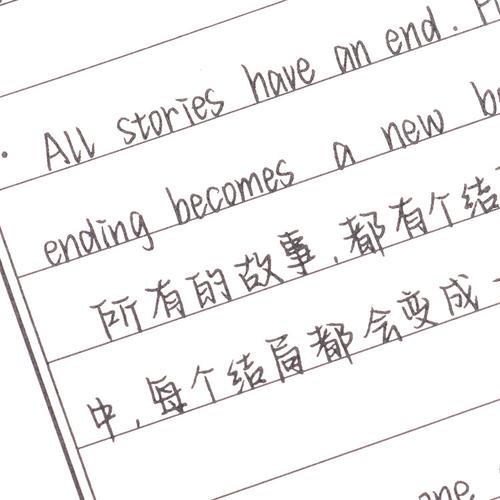 All stories have an end.
ending becomes a new
所有的故事,都有个结
中,每个结局都会变成